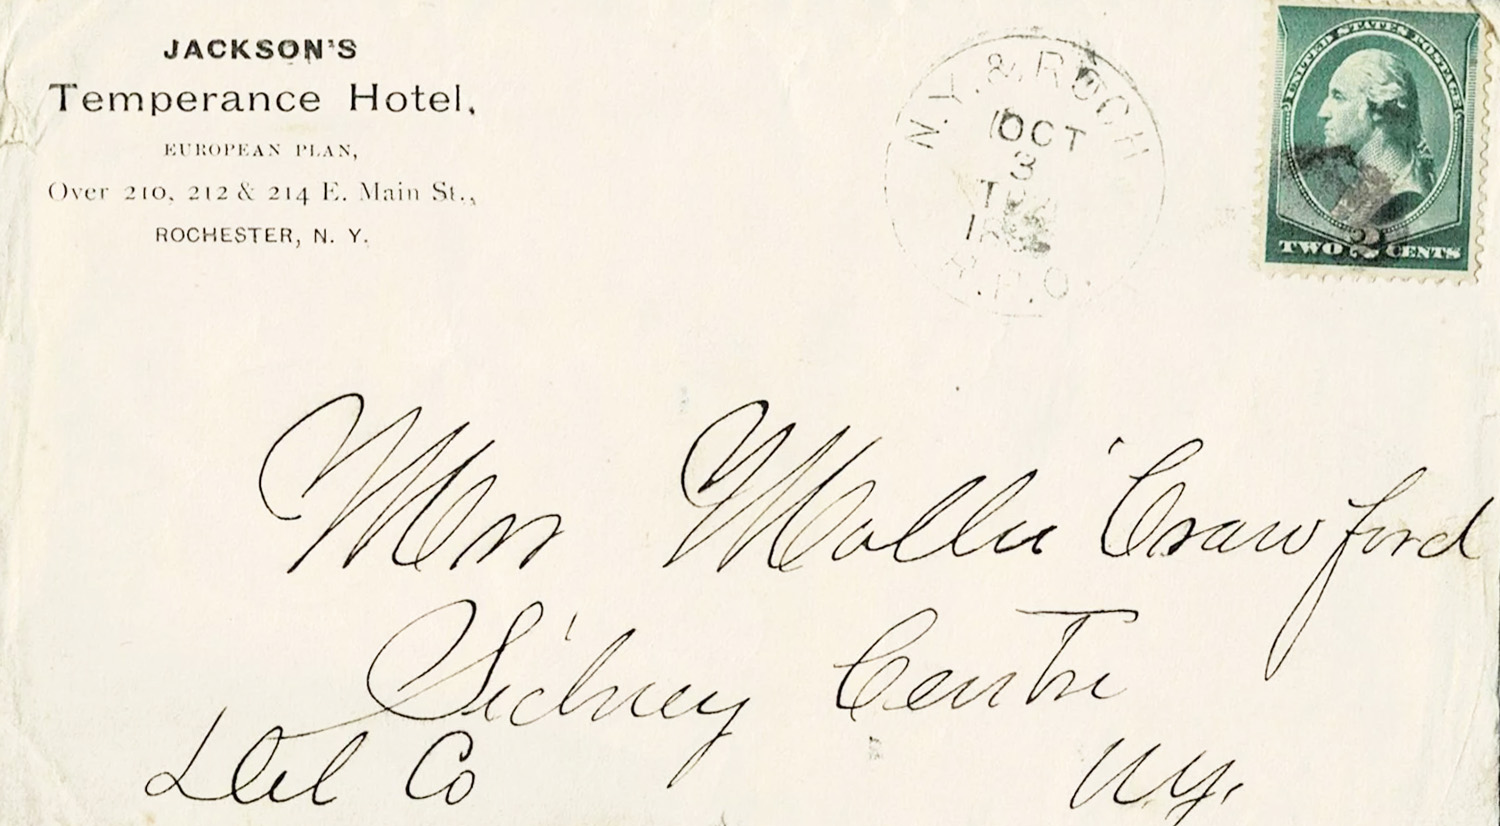 JACKSON'S
Temperance Hotel,
EUROPEAN PLAN,
Over 210, 212 & 214 E. Main St.,
ROCHESTER, N. Y.
N.Y. & ROCH
OCT
3
R.P.O.
UNITED STATES POSTAGE
TWO 2 CENTS
Mrs Mollie Crawford
Sidney Centre
Del Co N.Y.